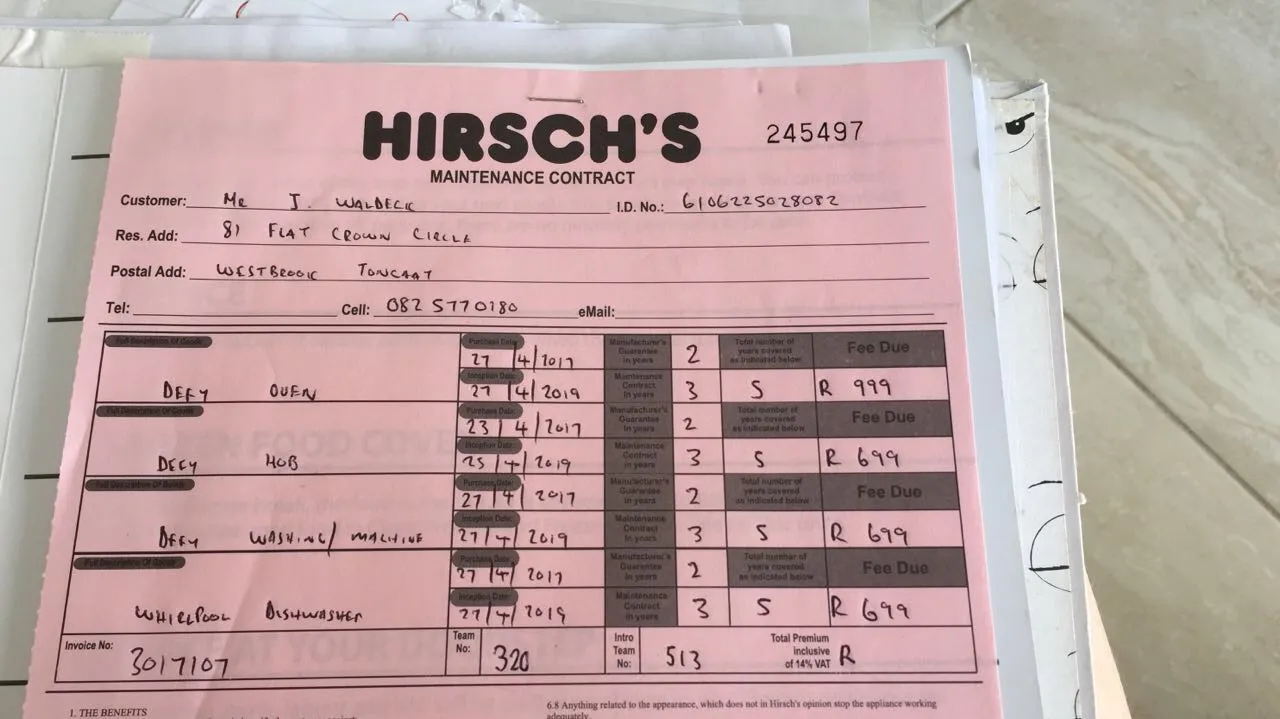 HIRSCH'S 245497
MAINTENANCE CONTRACT
Customer: MR J. WALDECK I.D. No.: 6106225028082
Res. Add: 81 FLAT CROWN CIRCLE
Postal Add: WESTBROOK TONGAAT
Tel: Cell: 082 5770180 eMail:
Full Description Of Goods Purchase Date: 27/4/2017 Manufacturer's Guarantee in years 2 Total number of years covered as indicated below Fee Due
DEFY OVEN Inception Date: 27/4/2019 Maintenance Contract in years 3 5 R 999
Full Description Of Goods Purchase Date: 23/4/2017 Manufacturer's Guarantee in years 2 Total number of years covered as indicated below Fee Due
DEFY HOB Inception Date: 25/4/2019 Maintenance Contract in years 3 5 R 699
Full Description Of Goods Purchase Date: 27/4/2017 Manufacturer's Guarantee in years 2 Total number of years covered as indicated below Fee Due
DEFY WASHING/MACHINE Inception Date: 27/4/2019 Maintenance Contract in years 3 5 R 699
Full Description Of Goods Purchase Date: 27/4/2017 Manufacturer's Guarantee in years 2 Total number of years covered as indicated below Fee Due
WHIRLPOOL DISHWASHER Inception Date: 27/4/2019 Maintenance Contract in years 3 5 R 699
Invoice No: 3017107 Team No: 320 Intro Team No: 513 Total Premium inclusive of 14% VAT R
1. THE BENEFITS
6.8 Anything related to the appearance, which does not in Hirsch's opinion stop the appliance working
adequately.